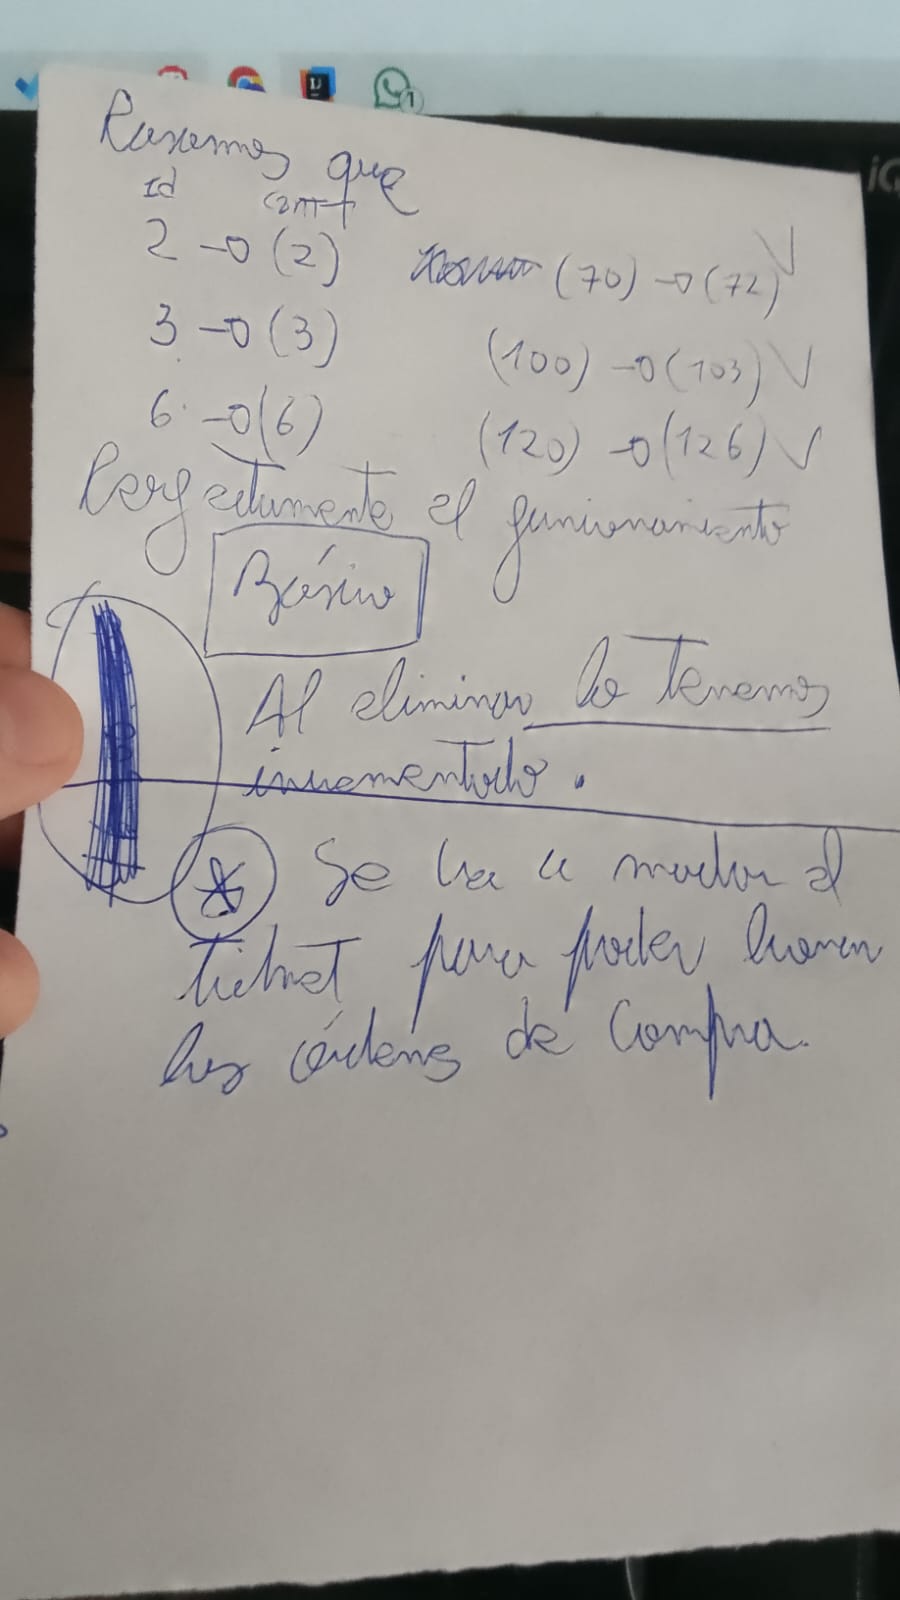 que
Id cant
2 → (2) (70) → (72) ✓
3 → (3) (100) → (103) ✓
6 → (6) (120) → (126) ✓
Perfectamente el funcionamiento
Básico
Al eliminar lo tenemos
incrementado.
Se va a mudar el
ticket para poder
las órdenes de Compra.
iQ
1